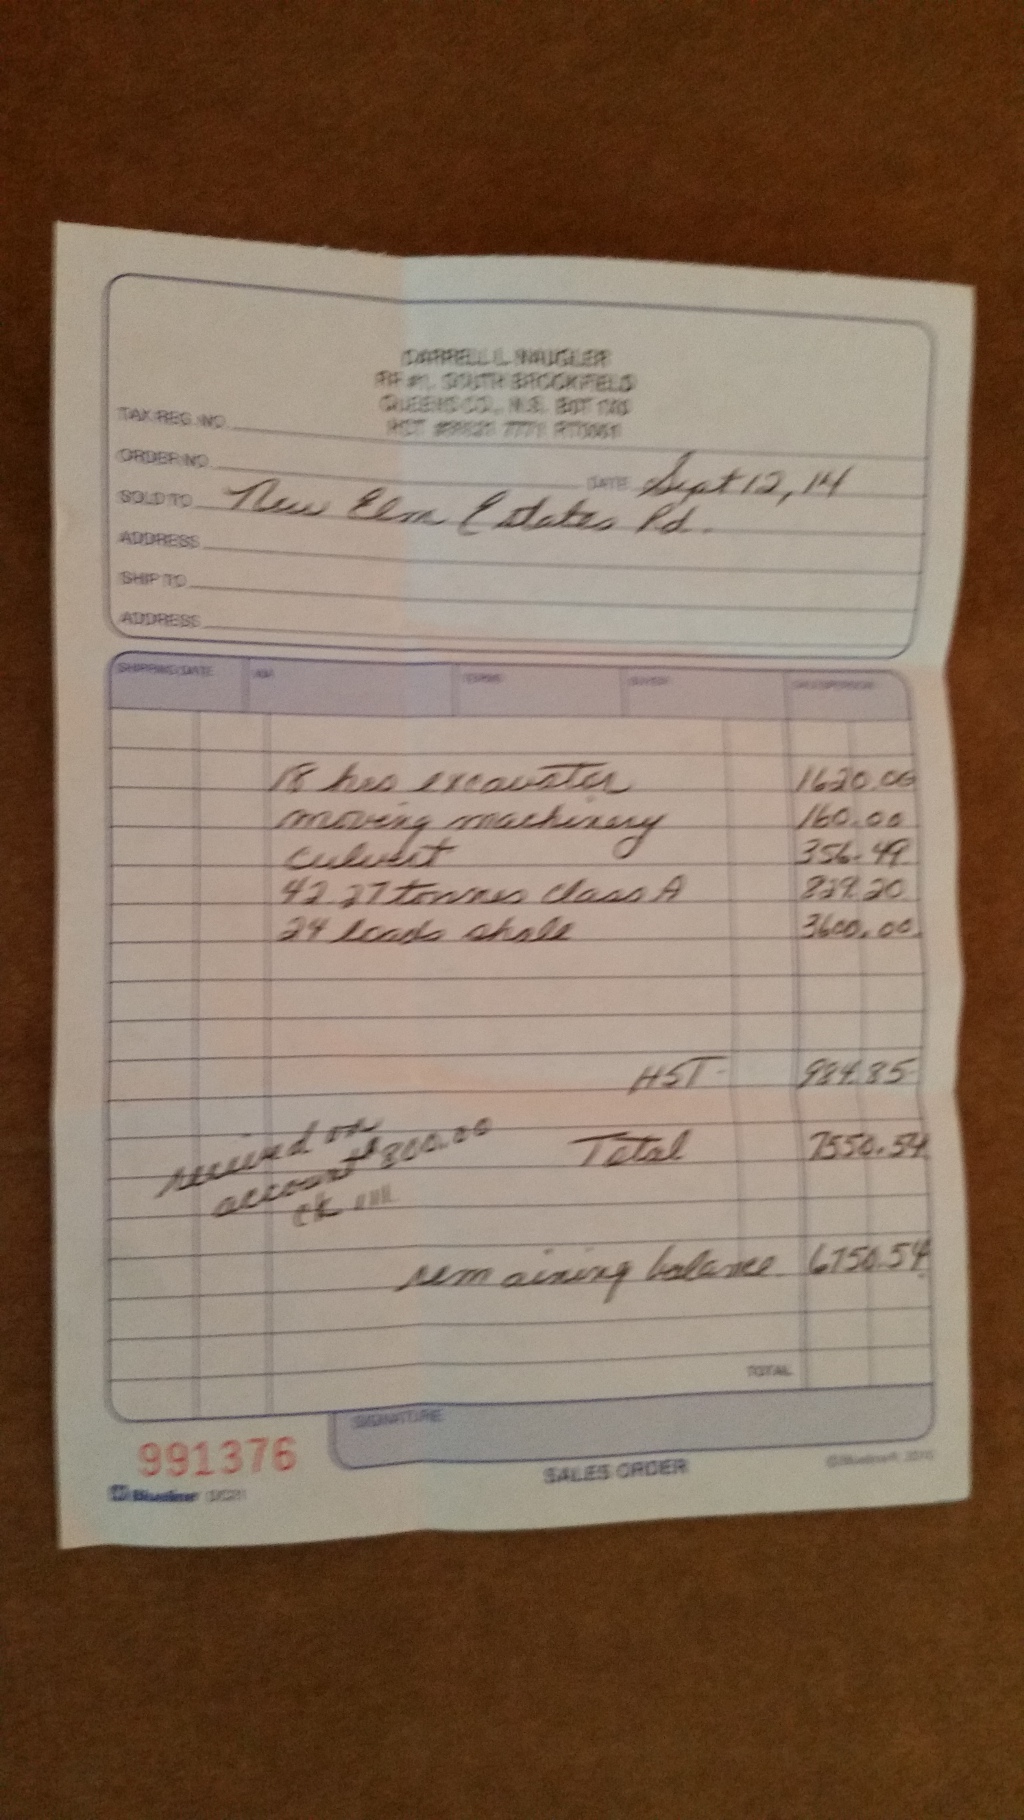 DARRELL L. WAUGLER
RR #1, SOUTH BROOKFIELD
QUEENS CO., N.S. B0T 1X0
TAX REG. NO.
ORDER NO.
DATE Sept 12, 14
SOLD TO New Elm Estates Rd.
ADDRESS
SHIP TO
ADDRESS
SHIPPING DATE VIA TERMS BUYER SALESPERSON
18 hrs excavator 1620.00
moving machinery 160.00
culvert 356.49
42.27 tonnes class A 829.20
24 loads shale 3600.00
HST 984.85
received on
account $800.00
Total 7550.54
ck
remaining balance 6750.54
TOTAL
SIGNATURE
991376
SALES ORDER
Blueline